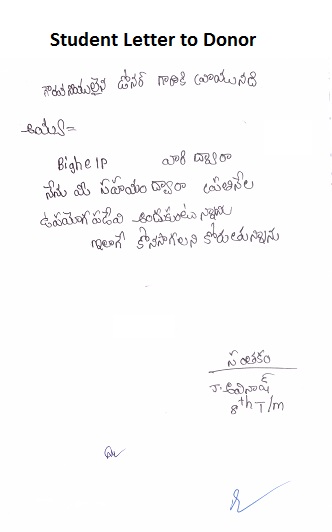 Student Letter to Donor
గౌరవనీయులైన డోనర్ గారికి వ్రాయునది
అయ్యా=
Bighelp వారి ద్వారా
నేను మీ సహాయం ద్వారా ప్రతినెల
ఉపయోగపడేవి అందుకుంటున్నాను
ఇలాగే కొనసాగాలని కోరుతున్నాను
సంతకం
J. అవినాష్
8th T/m